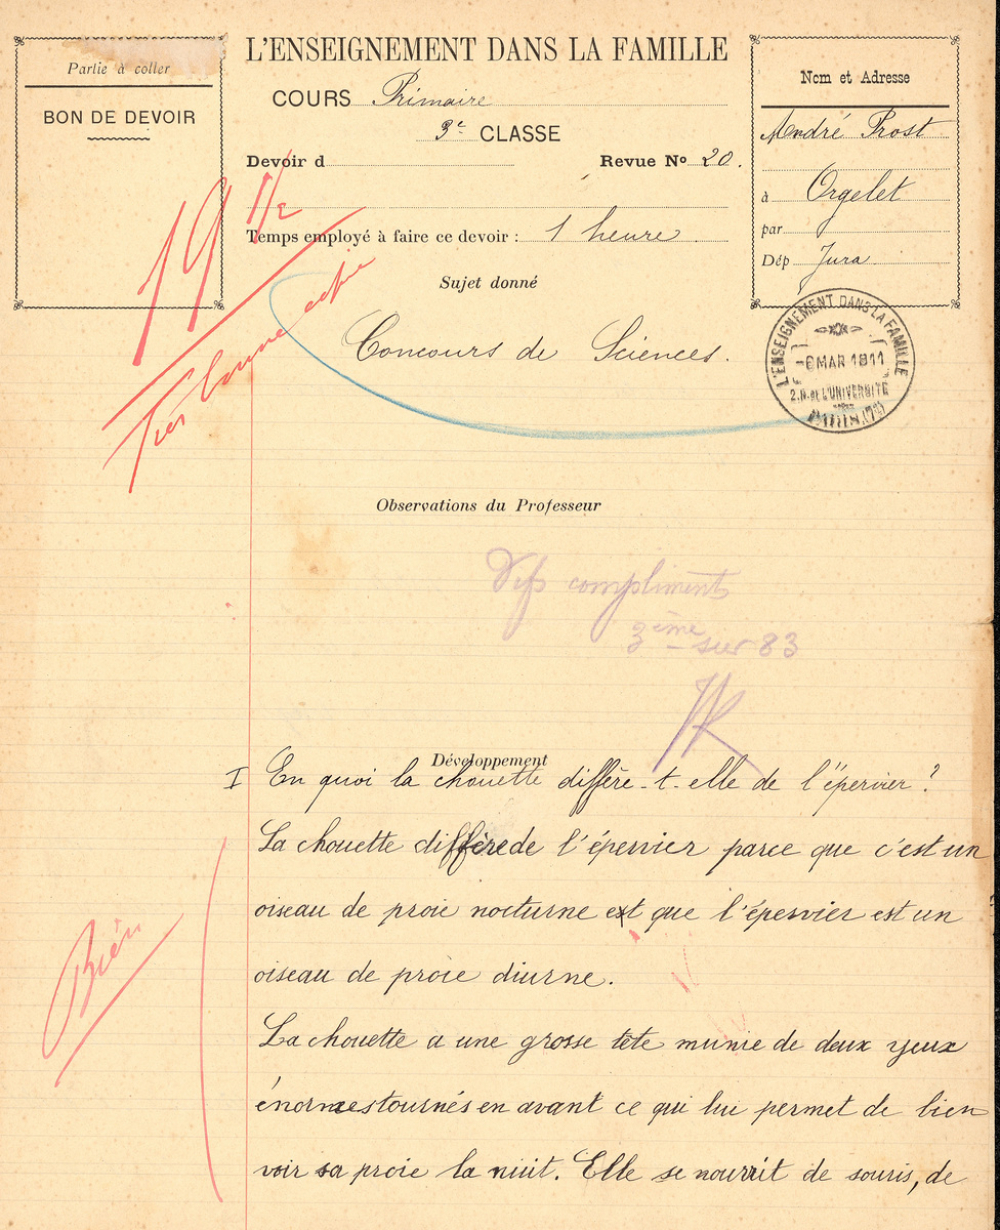 L'ENSEIGNEMENT DANS LA FAMILLE
Partie à coller
BON DE DEVOIR
COURS Primaire
3e CLASSE
Devoir d
Revue No 20.
Temps employé à faire ce devoir : 1 heure
Nom et Adresse
André Prost
à Orgelet
par
Dép Jura
19 1/2
Très bonne copie
Sujet donné
Concours de Sciences.
L'ENSEIGNEMENT DANS LA FAMILLE
MAR 1811
2, R. de L'UNIVERSITÉ
PARIS (7e)
Observations du Professeur
compliments
3ème sur 83
Développement
I En quoi la chouette diffère-t-elle de l'épervier ?
La chouette diffère de l'épervier parce que c'est un
oiseau de proie nocturne et que l'épervier est un
oiseau de proie diurne.
Bien
La chouette a une grosse tête munie de deux yeux
énormes tournés en avant ce qui lui permet de bien
voir sa proie la nuit. Elle se nourrit de souris, de